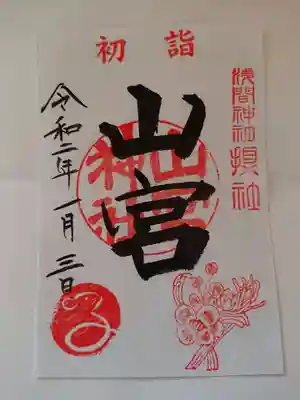 初詣
浅間神社摂社
山宮
山宮神社
令和二年一月三日
子